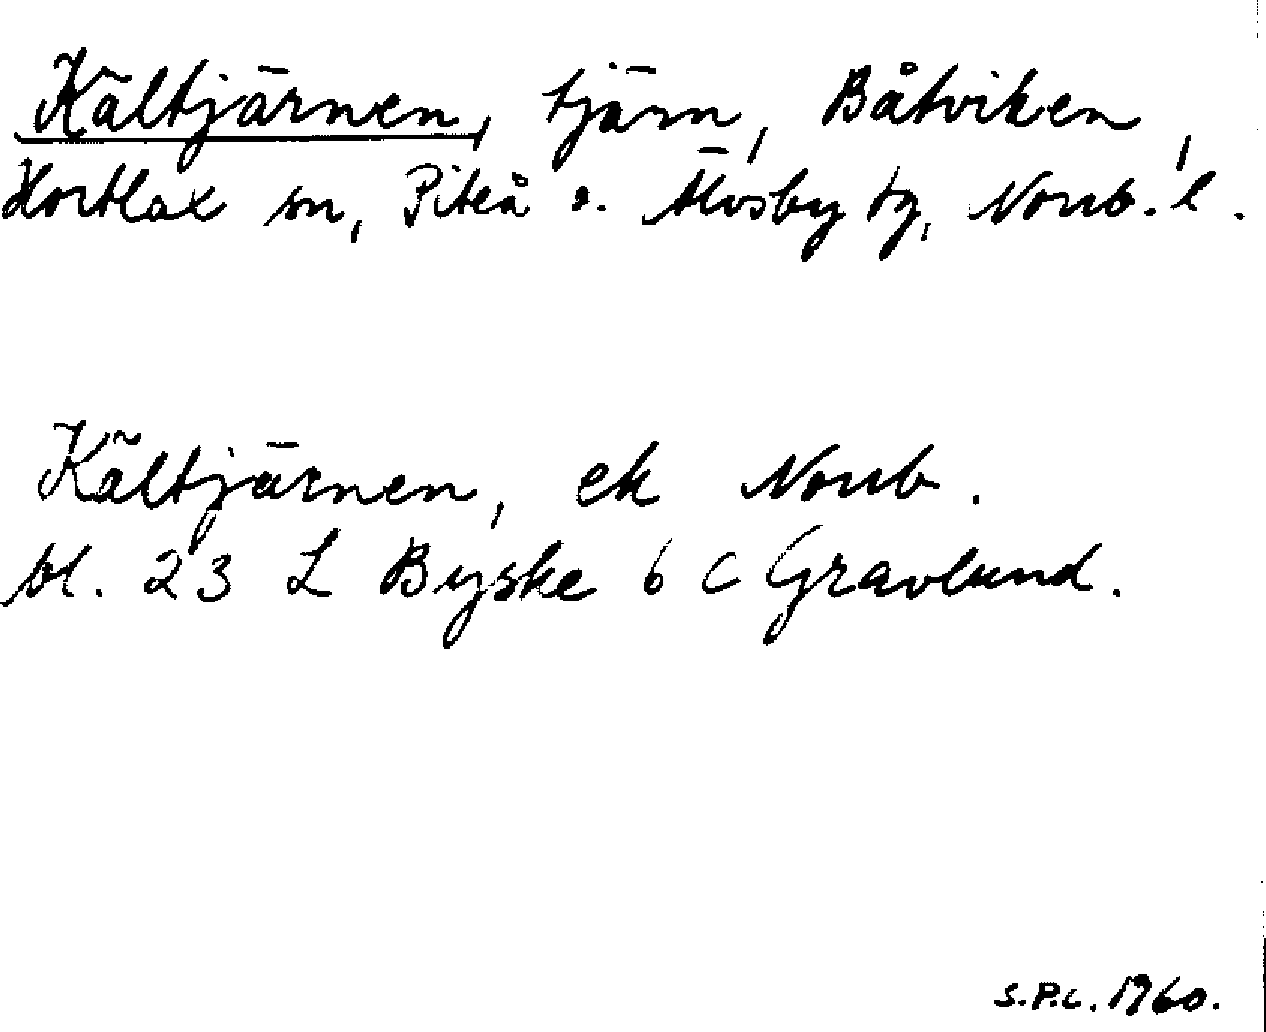 Kältjärnen, tjärn, Båtviken,
Hortlax sn, Piteå o. Älvsby tg, Norrb. l.
Kältjärnen, ek Norrb.
bl. 23 L Byske 6 c Gravlund.
S.P.C. 1960.